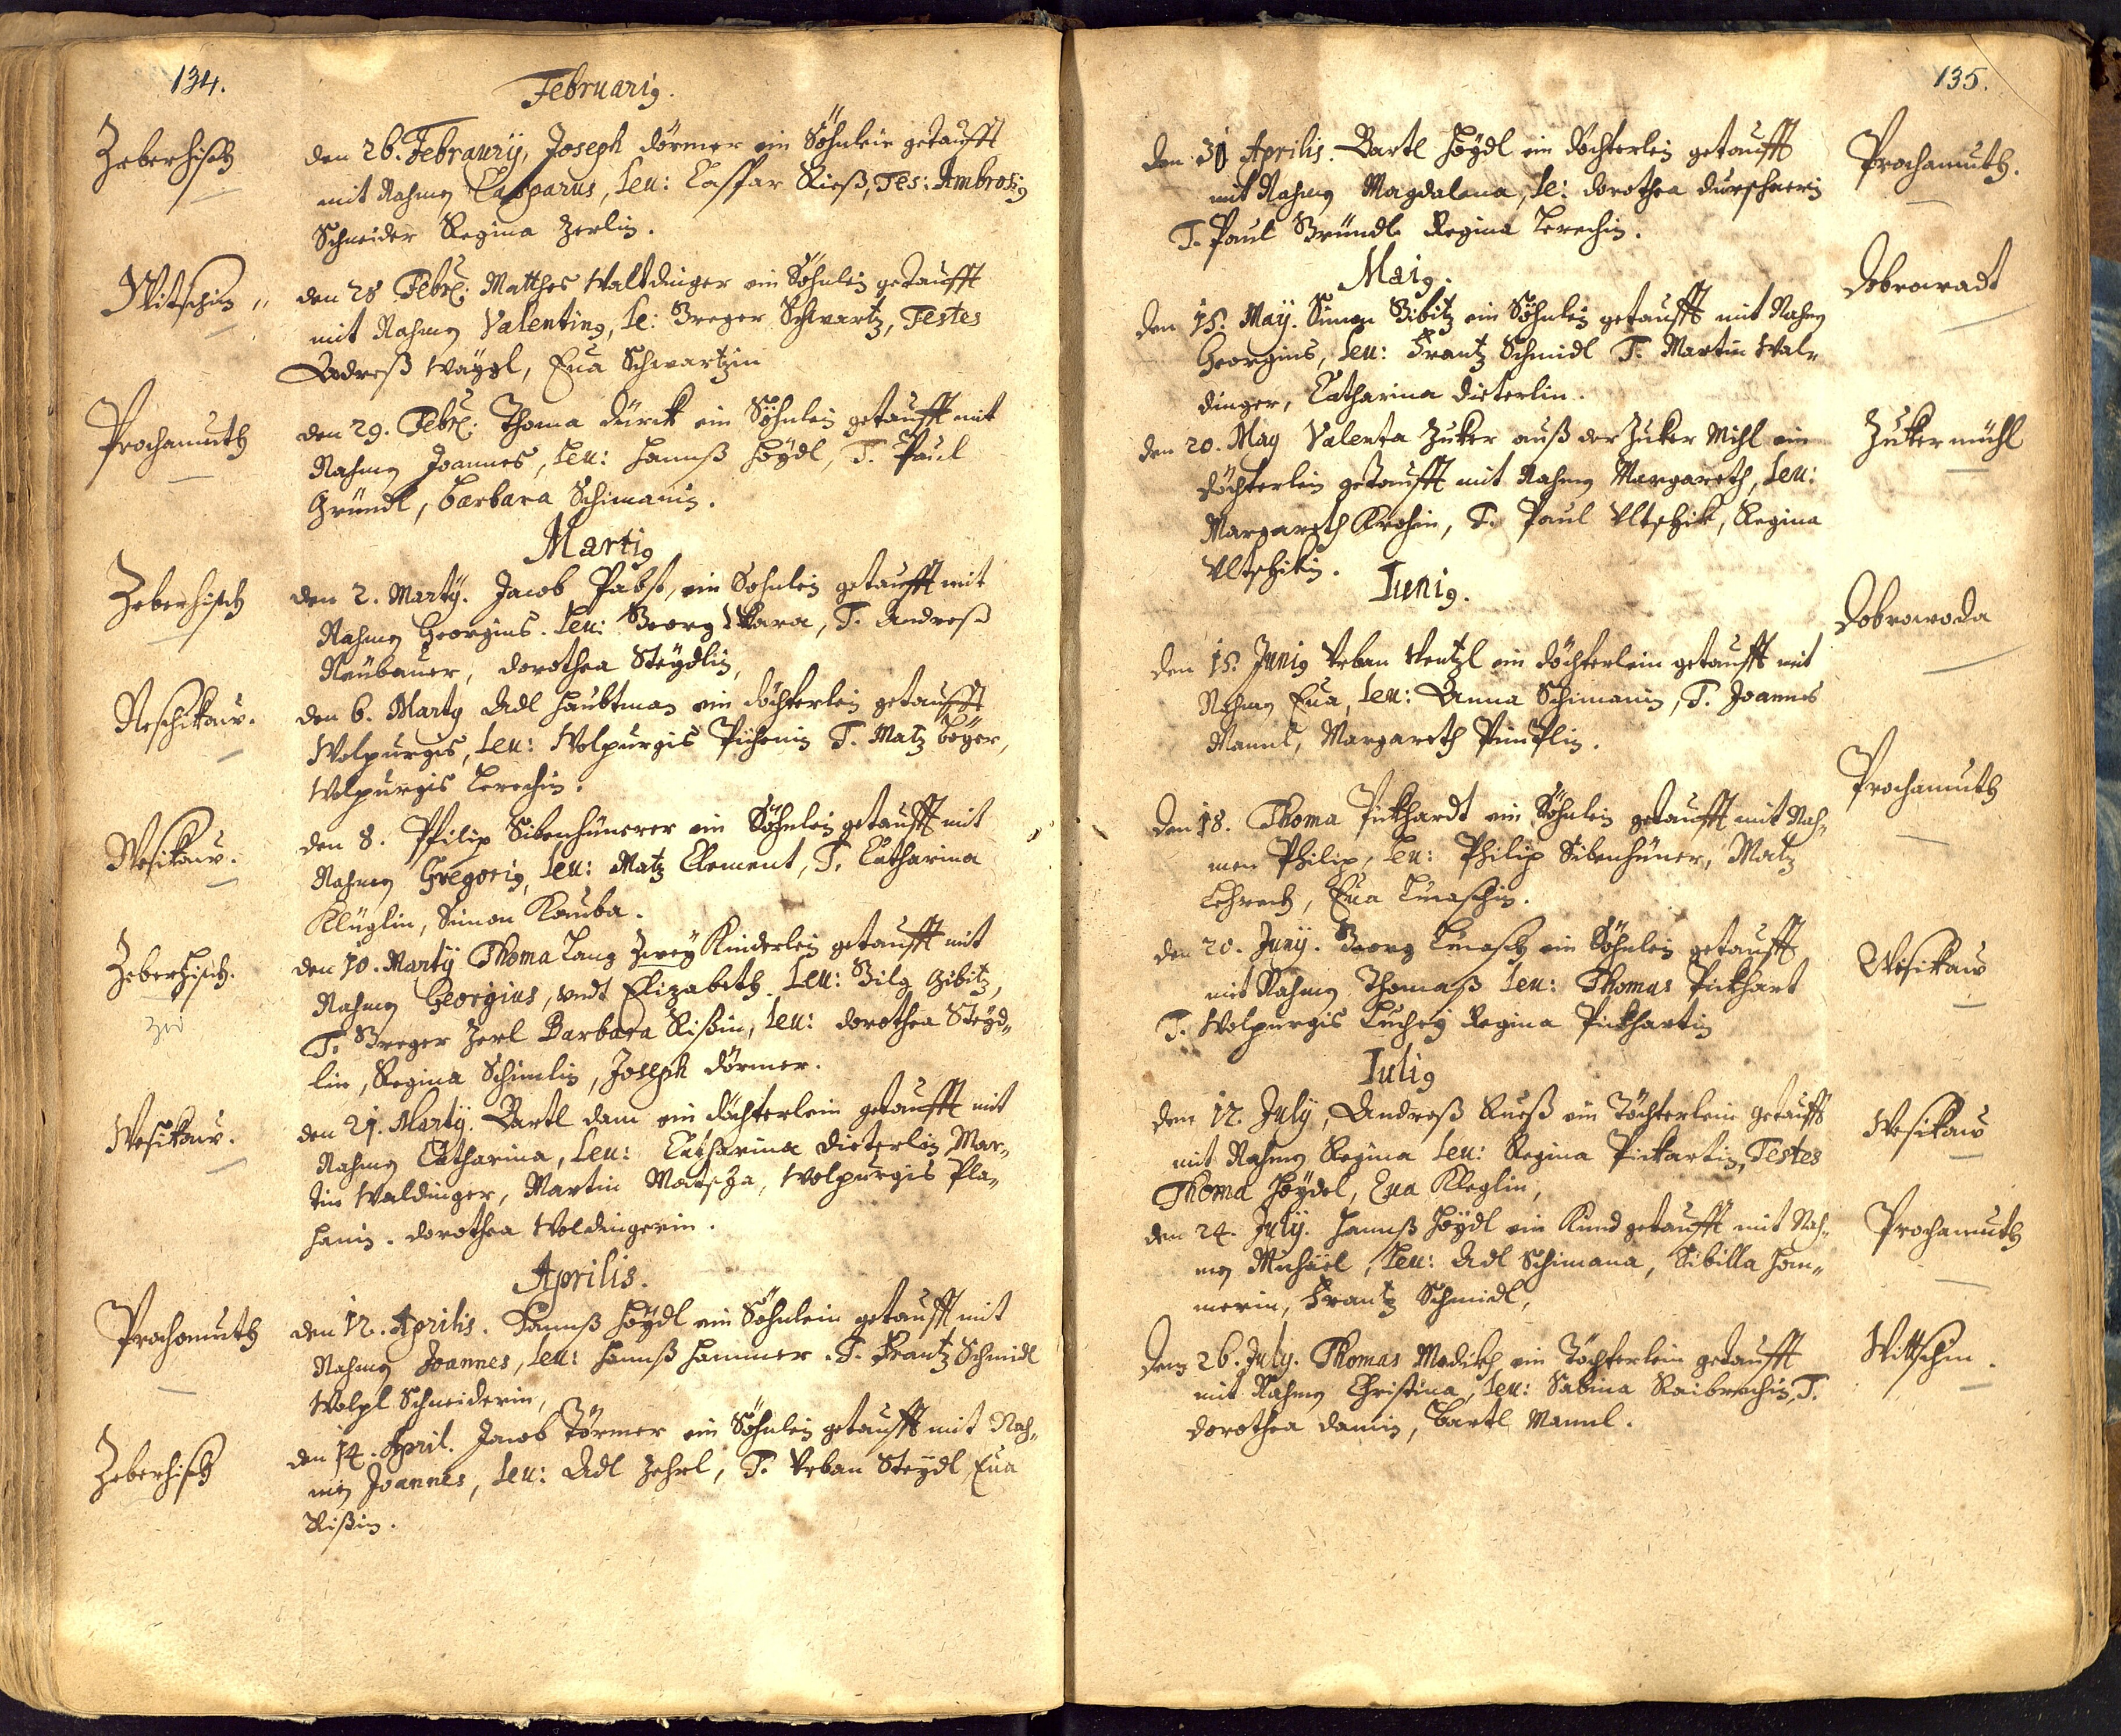 134.
Februarij.
Zeberhisch
den 26. Febraurij, Joseph dörmer ein Söhnlein getaufft
mit Nahmen Casparus, Leu: Caspar Rieß, Tes: Ambrosius
Schneider Regina Zerlin.
Witschin
den 28 Febr: Matthes Waltdinger ein Söhnlein getaufft
mit Nahmen Valentinus, Le: Greger Schwartz, Testes
Andreß Waygl, Eua Schwartzin
Prochamuth
den 29. Febr: Thoma dürck ein Söhnlein getaufft mit
Nahmen Joannes, Leu: Hannß Höydl, T. Paul
Gründl, barbara Schimanin.
Martius
Zeberhisch
den 2. Martij. Jacob Pabst, ein Sohnlein getaufft mit
Nahmen Georgius. Leu: Georg Skara, T. Andreß
Neübauer, dorothea Steydlin,
Reschikaw.
den 6. Martij Adl Haubtman ein döchterlein getaufft
Wolpurgis, Leu: Wolpurgis T. Matz böyer,
Wolpurgis Lerechin.
Wesikaw.
den 8. Philip Sibenhünerer ein Söhnlein getaufft mit
Nahmen Gregorius, Leu: Matz Clement, T. Catharina
Klüglin, Simon Kauba.
Zeberhisch.
den 10. Martij Thoma Lang Zwey Kinderlein getaufft mit
Nahmen Georgius, vndt Elizabeth. Leu: Gilg Gibitz,
T. Greger Zerl Barbara Rißin, Leu: dorothea Steyd-
lin, Regina Schimlin, Joseph dörmer.
Wesikaw.
den 21. Martij. Bartl dam ein döchterlein getaufft mit
Nahmen Catharina, Leu: Catharina dieterlin, Mar-
tin Waldinger, Martin Matscha, Wolpurgis Pla-
hanin. dorothea Woldingerin.
Aprilis.
Prochomuth
den 12. Aprilis. Hannß Höydl ein Söhnlein getaufft mit
Nahmen Joannes, Leu: Hannß Hammer. T. Frantz Schmidl
Wolpl Schneiderin,
Zeberhisch
den 14. April. Jacob Törmer ein Söhnlein getaufft mit Nah-
men Joannes, Leu: Adl Zehrl, T. Vrban Steydl Eua
Rißin.
135.
Prochamuth.
den 30 Aprilis. Bartl Höydl ein döchterlein getaufft
mit Nahmen Magdalena, Le: dorothea durschnerin
T. Paul Gründl Regina Lerechin.
Maius.
Dobrawadt
den 15. Maij. Simon Gibitz ein Söhnlein getaufft mit Nahmen
Georgius, Leu: Frantz Schmidl T. Martin Wal-
dinger, Catharina dieterlin.
Zukermühl
den 20. May Valenta Zuker auß der Zuker Mihl ein
döchterlein getaufft mit Nahmen Margareth, Leu:
Margareth Krohin, T. Paul Vltschik, Regina
Vltschikin.
Iunius.
Dobrowoda
den 15. Junius Vrban Wentzl ein döchterlein getaufft mit
Nahmen Eua, Leu: Anna Schimanin, T. Joannes
Mannl, Margareth Pimplin.
Prochamuth
den 18. Thoma Pickhardt ein Söhnlein getaufft mit Nah-
men Philip, Leu: Philip Sibenhüner, Matz
Lehrech, Eua Lucaschin.
Wesikaw
den 20. Junij. Georg Lucasch ein Söhnlein getaufft
mit Nahmen Thomaß Leu: Thomas Pickhart
T. Wolpurgis Regina Pickhartin
Iulius
Wesikaw
den 12. July, Andreß Rueß ein Töchterlein getaufft
mit Nahmen Regina Leu: Regina Pickartin, Testes
Thoma Höydel, Eua Kleglin,
Prochamuth
den 24. July. Hannß Höydl ein Kind getaufft mit Nah-
men Michäel, Leu: Adl Schimana, Sibilla Ham-
merin, Frantz Schmidl,
Wittschin.
den 26. July. Thomas Madikh ein Töchterlein getaufft
mit Nahmen Christina, Leu: Sabina Raibrechin, T.
dorothea damin, Bartl Mannl.